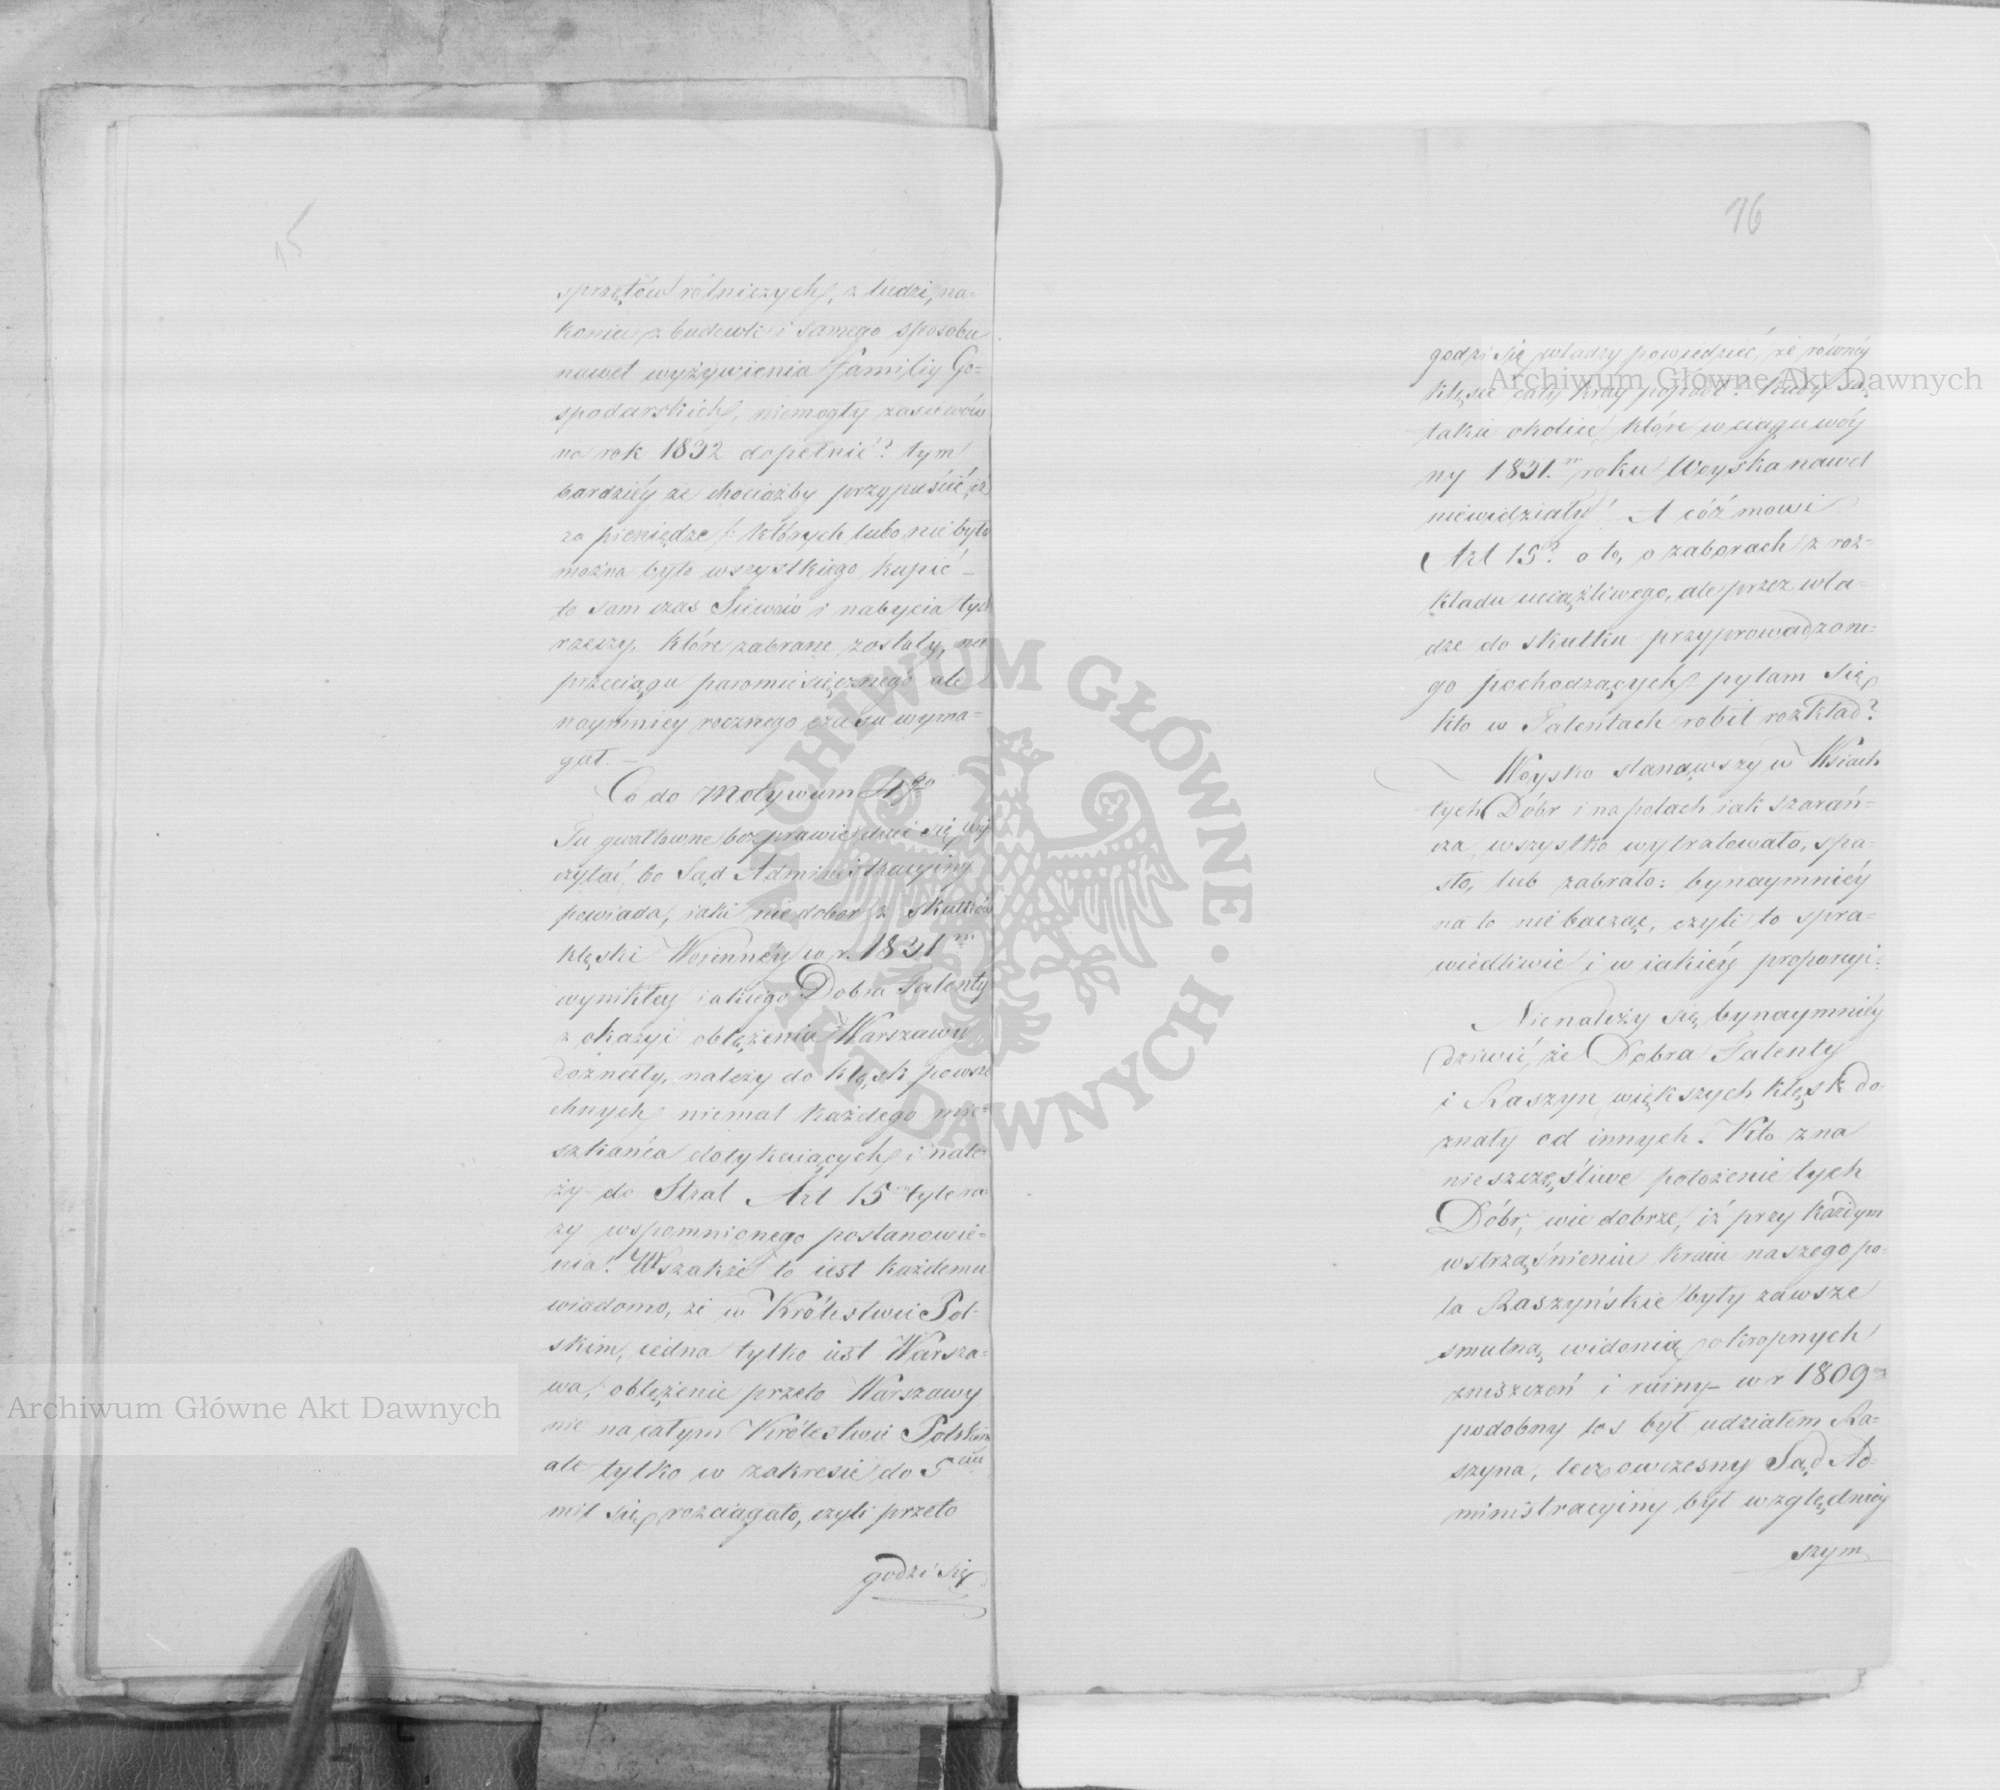 15
sprzętów rólniczych, z ludzi, na-
koniec z budowli i samego sposobu
nawet wyżywienia Familiy Go-
spodarskich, niemogły zasiewów
na rok 1832 dopełnić? tym
bardziéy że chociażby przypuścić, iż
za pieniądze /: których lubo nie było
można było wszystkiego kupić –
to sam czas Siewów i nabycia tych
rzeczy, które zabrane zostały, nie
przeciągu paromiesięcznego ale
naymniey rocznego czasu wyma-
gał. –
Co do Motywum 4go
Tu gwałtowne bezprawie daie się wy
czytać, bo Sąd Administracyiny
powiada, iaki niedobór z skutków
klęski Woienney w r. 1831 m
wynikłey iakiego Dobra Falenty
z okazyi oblężenia Warszawy
doznały, należy do klęsk powsze
chnych niemal każdego mie-
szkańca dotykaiących i nale-
ży do Strat Art 15 tylera-
zy wspomnionego postanowie-
nia! Wszakże to iest każdemu
wiadomo, że w Królestwie Pol-
skim, iedna tylko iest Warsza-
wa, oblężenie przeto Warszawy
nie na całym Królestwie Polskim
ale tylko w zakresie do 5ciu
mil się rozciągało, czyli przeto
godzi się
16
godzi się władzy powiedzieć, że równéy
klęsce cały Kray podpadł? kiedy są
takie okolice, które w ciągu wóy
ny 1831. m roku Woyska nawet
niewidziały! A cóż mowi
Art 15? o to, o zaborach z roz-
kładu uciążliwego, ale przez wła-
dze do skutku przyprowadzone-
go pochodzących – pytam się
kto w Falentach robił rozkład?
Woysko stanąwszy w Wsiach
tych Dóbr i na polach iak szarań-
cza, wszystko wytratowało, spa-
sło, lub zabrało: bynaymniéy
na to nie bacząc, czyli to spra-
wiedliwie i w iakiéy proporcyi:
Nienależy się bynaymniéy
dziwić, że Dobra Falenty
i Raszyn większych klęsk do-
znały od innych. Kto zna
nieszczęśliwe położenie tych
Dóbr, wie dobrze, iż przy każdym
wstrząśnieniu kraiu naszego po-
la Raszyńskie były zawsze
smutną widownią okropnych
zniszczeń i ruiny – w r 1809
podobny los był udziałem Ra-
szyna, lecz owczesny Sąd Ad-
ministracyiny był względniéy
szym
Archiwum Główne Akt Dawnych
Archiwum Główne Akt Dawnych
ARCHIWUM GŁÓWNE AKT DAWNYCH